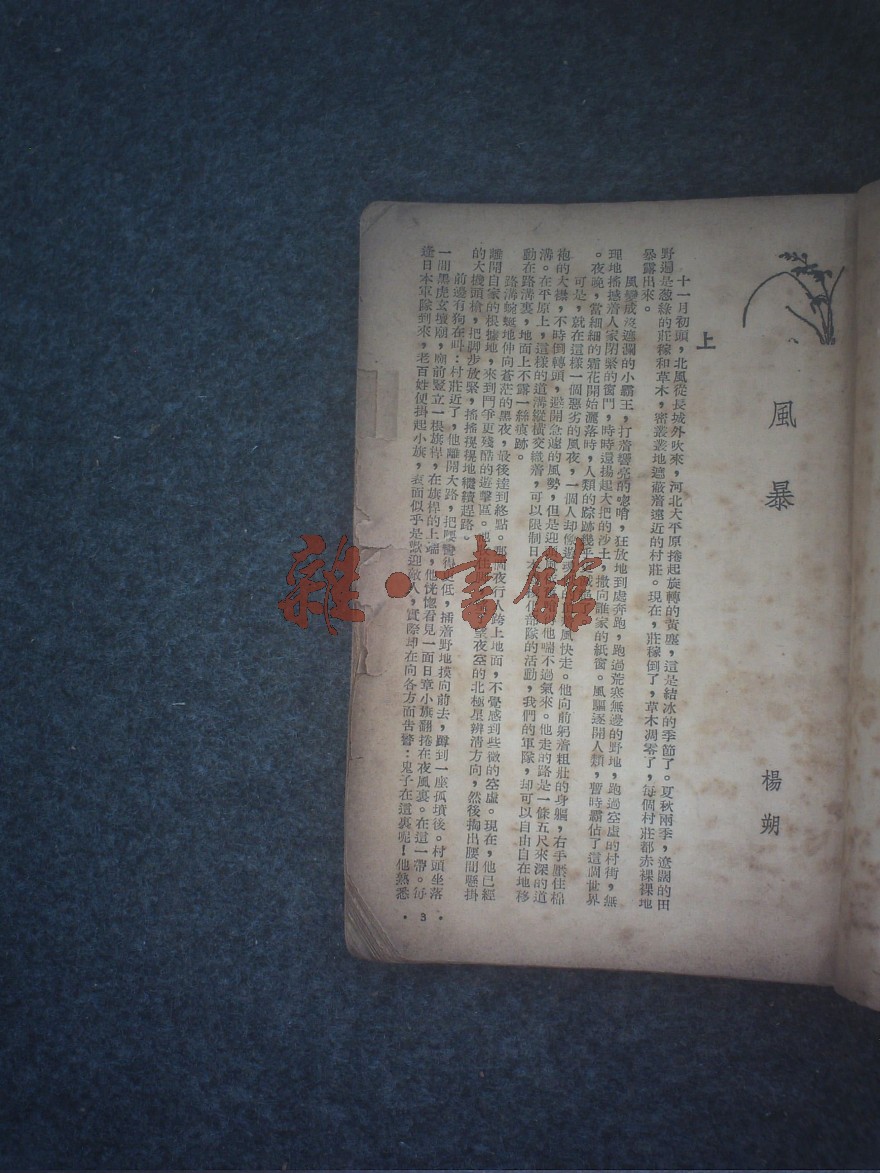 風暴
楊朔
上
十一月初頭，北風從長城外吹來，河北大平原捲起旋轉的黃塵，這是結冰的季節了。夏秋兩季，遼闊的田
野過是葱綠的莊稼和草木，密叢叢地遮蔽着遠近的村莊。現在，莊稼倒了，草木凋零了，每個村莊都赤裸裸地
暴露出來。
風變成沒遮攔的小霸王，打着響亮的唿哨，狂放地到處奔跑，跑過荒寒無邊的野地，跑過空虛的村街，無
理地搖撼着人家閉緊的窗門，時時還揚起大把的沙土，撒向誰家的紙窗。風驅逐開人類，暫時霸佔了這個世界
。夜晚，當細細的霜花開始灑落時，人類的踪跡幾乎
可是，就在這樣一個惡劣的風夜，一個人却像遊魂 風快走。他向前躬着粗壯的身軀，右手壓住棉
袍的大襟，不時倒轉頭，避開急遽的風勢，但是迎 他喘不過氣來。他走的路是一條五尺來深的道
溝。在平原上，這樣的道溝縱橫交織着，可以限制日本 化部隊的活動，我們的軍隊，却可以自由自在地移
動在路溝裏，地面上不露一絲痕跡。
路溝蜿蜒地伸向蒼茫的黑夜，最後達到終點。那個夜行人跨上地面，不覺感到些微的空虛。現在，他已經
離開自家的根據地，來到鬥爭更殘酷的遊擊區。他 望夜空的北極星辨清方向，然後掏出腰間懸掛
的大機頭槍，把脚步放緊，搖搖提提地繼續趕路。
前邊有狗在叫：村莊近了，他離開大路，把腰彎得更低，插着野地摸向前去，蹲到一座孤墳後。村頭坐落
一間黑虎玄壇廟，廟前豎立一根旗桿，在旗桿的上端，他恍惚看見一面日章小旗翻捲在夜風裏。在這一帶。每
逢日本軍隊到來，老百姓便掛起小旗，表面似乎是歡迎敵人，實際却在向各方面告警：鬼子在這裏呢！他熟悉
·3·
雜·書館